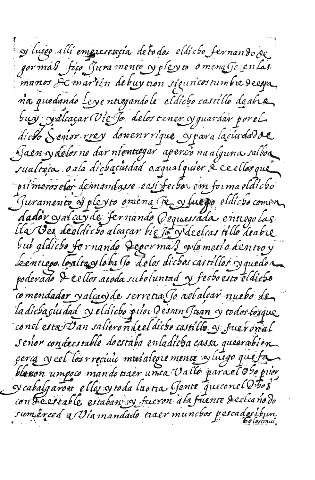 y luego alli en presençia de todos el dicho fernando de
gormaz fizo Juramento y pleyto omenaje en las
manos de martin de buytron sigun costumbre de espa
ña quedando le y entregandole el dicho castillo de abre
buy y alcaçar viejo de los tener y guardar por el
dicho señor rrey don enrrique y para la çiudad de
Jaen y de los no dar ni entregar a persona alguna salvo a
su alteza o a la dicha çiudad o a qualquier de ellos que
primero se los demandase easi fecho en forma el dicho
Juramento y pleyto omenaje y luego el dicho comen
dador y alcayde fernando de quesada entrego las
llaves de el dicho alcaçar viejo y de el castillo de abre
buy al dicho fernando de gormaz y lo metio dentro y
le entrego lo alto y lo baxo de los dichos castillos y quedo
apoderado de ellos a toda su voluntad y fecho esto el dicho
comendador y alcayde se rretrajo a el alcaçar nuebo de
la dicha çiudad y el dicho prior de san Juan y todos los que
con el estavan salieron de el dicho castillo y fueron al
señor condestable do estaba en la dicha casa que era bien
çerca y el los rreçiuio mui alegremente y luego que fa
blaron un poco mando traer un cavallo para el dho prior
y cabalgaron ellos y toda la otra Gente que con el dho s
condestable estaban y fueron a la fuente de el caño do
su merçed avia mandado traer munchos pescados i bun